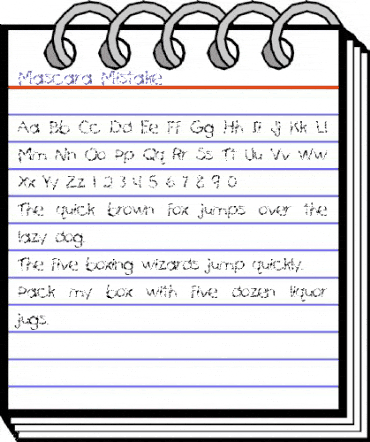 Mascara Mistake
Aa Bb Cc Dd Ee Ff Gg Hh Ii Jj Kk Ll
Mm Nn Oo Pp Qq Rr Ss Tt Uu Vv Ww
Xx Yy Zz 1 2 3 4 5 6 7 8 9 0
The quick brown fox jumps over the
lazy dog.
The five boxing wizards jump quickly.
Pack my box with five dozen liquor
jugs.